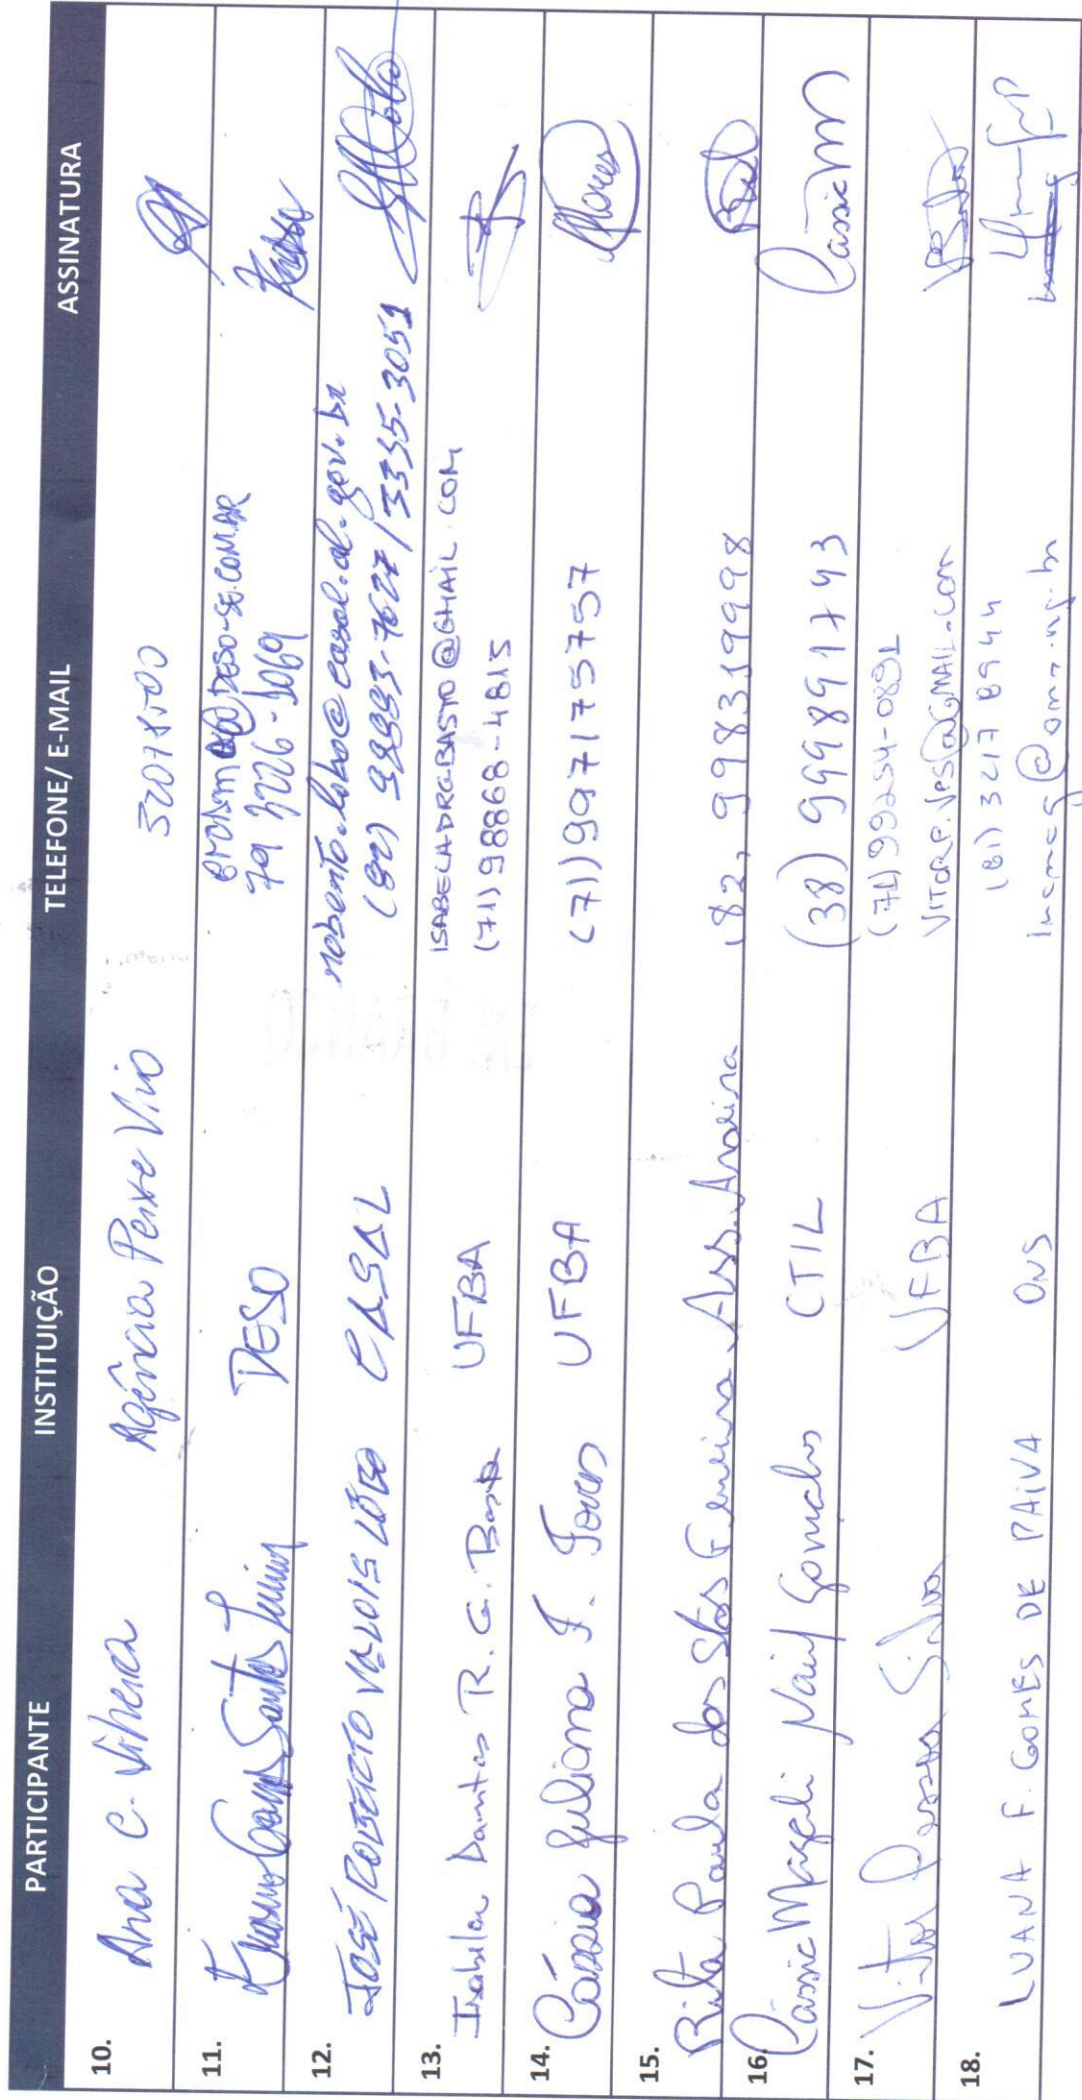 PARTICIPANTE INSTITUIÇÃO TELEFONE/ E-MAIL ASSINATURA
10. Ana C. Silveira Agência Peixe Vivo 32078500
11. Gomes Santos Junior DESO DESO-SE.COM.BR
79 3226-1069
12. JOSÉ ROBERTO VALOIS LÔBO CASAL roberto.lobo@casal.al.gov.br
(82) 98883-7627 / 3315-3051
13. Isabela Dantas R. G. Basto UFBA ISABELADRGBASTO@GMAIL.COM
(71) 98868-4815
14. Cássia Juliana F. Torres UFBA (71) 997175757
15. Rita Paula dos Stos Ferreira Ass. Aroeira (82) 998319998
16. Cássia Magali Gonçalves CTIL (38) 999891743 Cássia M
17. Vitor Pessoa Silva UFBA (71) 99254-0891
VITORP.VPS@GMAIL.COM
18. LUANA F. GOMES DE PAIVA ONS (81) 32178944
luanag@ons.org.br
EM BRANCO